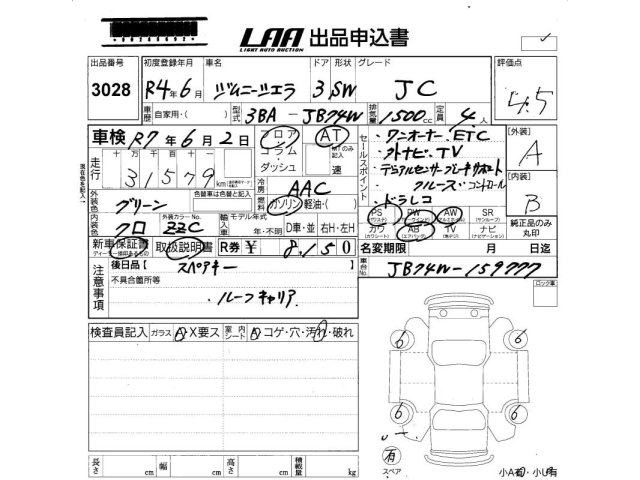 LAA 出品申込書
LIGHT AUTO AUCTION
出品番号 初度登録年月 車名 ドア 形状 グレード 評価点
3028 R4年6月 ジムニーシエラ 3 SW JC 4.5
車歴 自家用・( ) 型式 3BA-JB74W 排気量 1500cc 定員 4人
車検 R7年6月2日 フロア コラム ダッシュ AT MTのみ記入 速
走行 十万 万 千 百 十
31579 km
冷房 AAC
外装色 グリーン 色替車は色替と記入 燃料 ガソリン 軽油・( )
内装色 クロ 外装カラーNo. ZZC 輸入車 モデル年式 年・不明 D車・並 右H・左H
新車保証書 取扱説明書 R券 ¥ 8,150
セールスポイント
・ワンオーナー ETC
・外ナビ・TV
・デュアルセンサーブレーキサポート
クルーズ・コントロール
・ドラレコ
PS PW AW SR
カワ AB TV ナビ
[外装] A
[内装] B
純正品のみ丸印
名変期限 月 日迄
車台No. JB74W-159777
注意事項 後日品【 スペアキー 】
不具合箇所等
ルーフキャリア
ロック車
検査員記入 ガラス A・X要ス 室内シート A・コゲ・穴・汚れ・破れ
6 6
6 6
有
スペア
長さ cm 幅 cm 高さ cm 積載量 kg
小A有・小U有